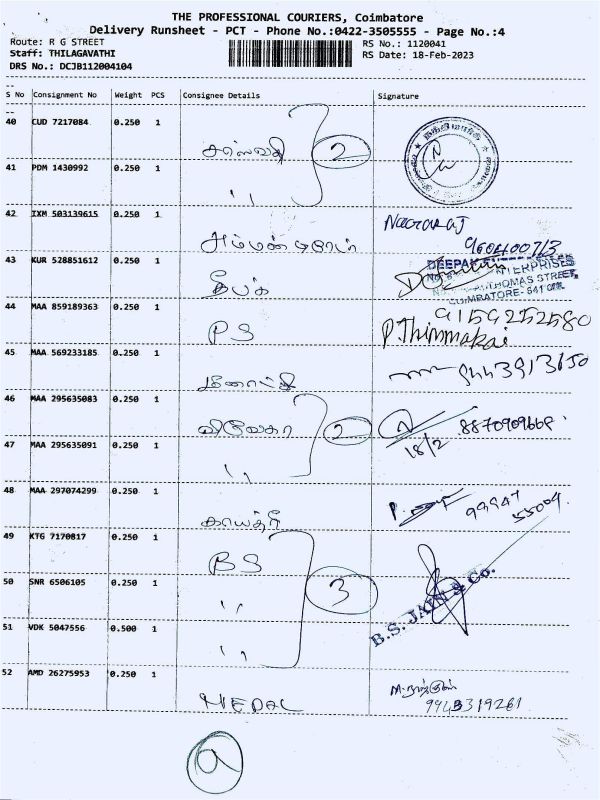 THE PROFESSIONAL COURIERS, Coimbatore
Delivery Runsheet - PCT - Phone No.:0422-3505555 - Page No.:4
Route: R G STREET RS No.: 1120041
Staff: THILAGAVATHI RS Date: 18-Feb-2023
DRS No.: DCJB112004104
S No Consignment No Weight PCS Consignee Details Signature
40 CUD 7217084 0.250 1
2
41 PDM 1430992 0.250 1
''
42 IXM 503139615 0.250 1
Nagaraj
43 KUR 528851612 0.250 1
தீபக்
DEEPA ENTERPRISES
THOMAS STREET,
COIMBATORE-641 001.
44 MAA 859189363 1 0.250
PS
9159252580
P.Thimmakai
45 MAA 569233185 0.250 1
மீனாட்சி
46 MAA 295635083 0.250 1
விவேகா 2 8870909668
18/2
47 MAA 295635091 0.250 1
''
48 MAA 297074299 0.250 1
காயத்ரி
99947
55004
49 KTG 7170817 0.250 1
BS
50 SNR 6506105 0.250 1
'' 3
B.S. JAIN & Co.
51 VDK 5047556 0.500 1
''
52 AMD 26275953 0.250 1
NEPAL
9943319261
9